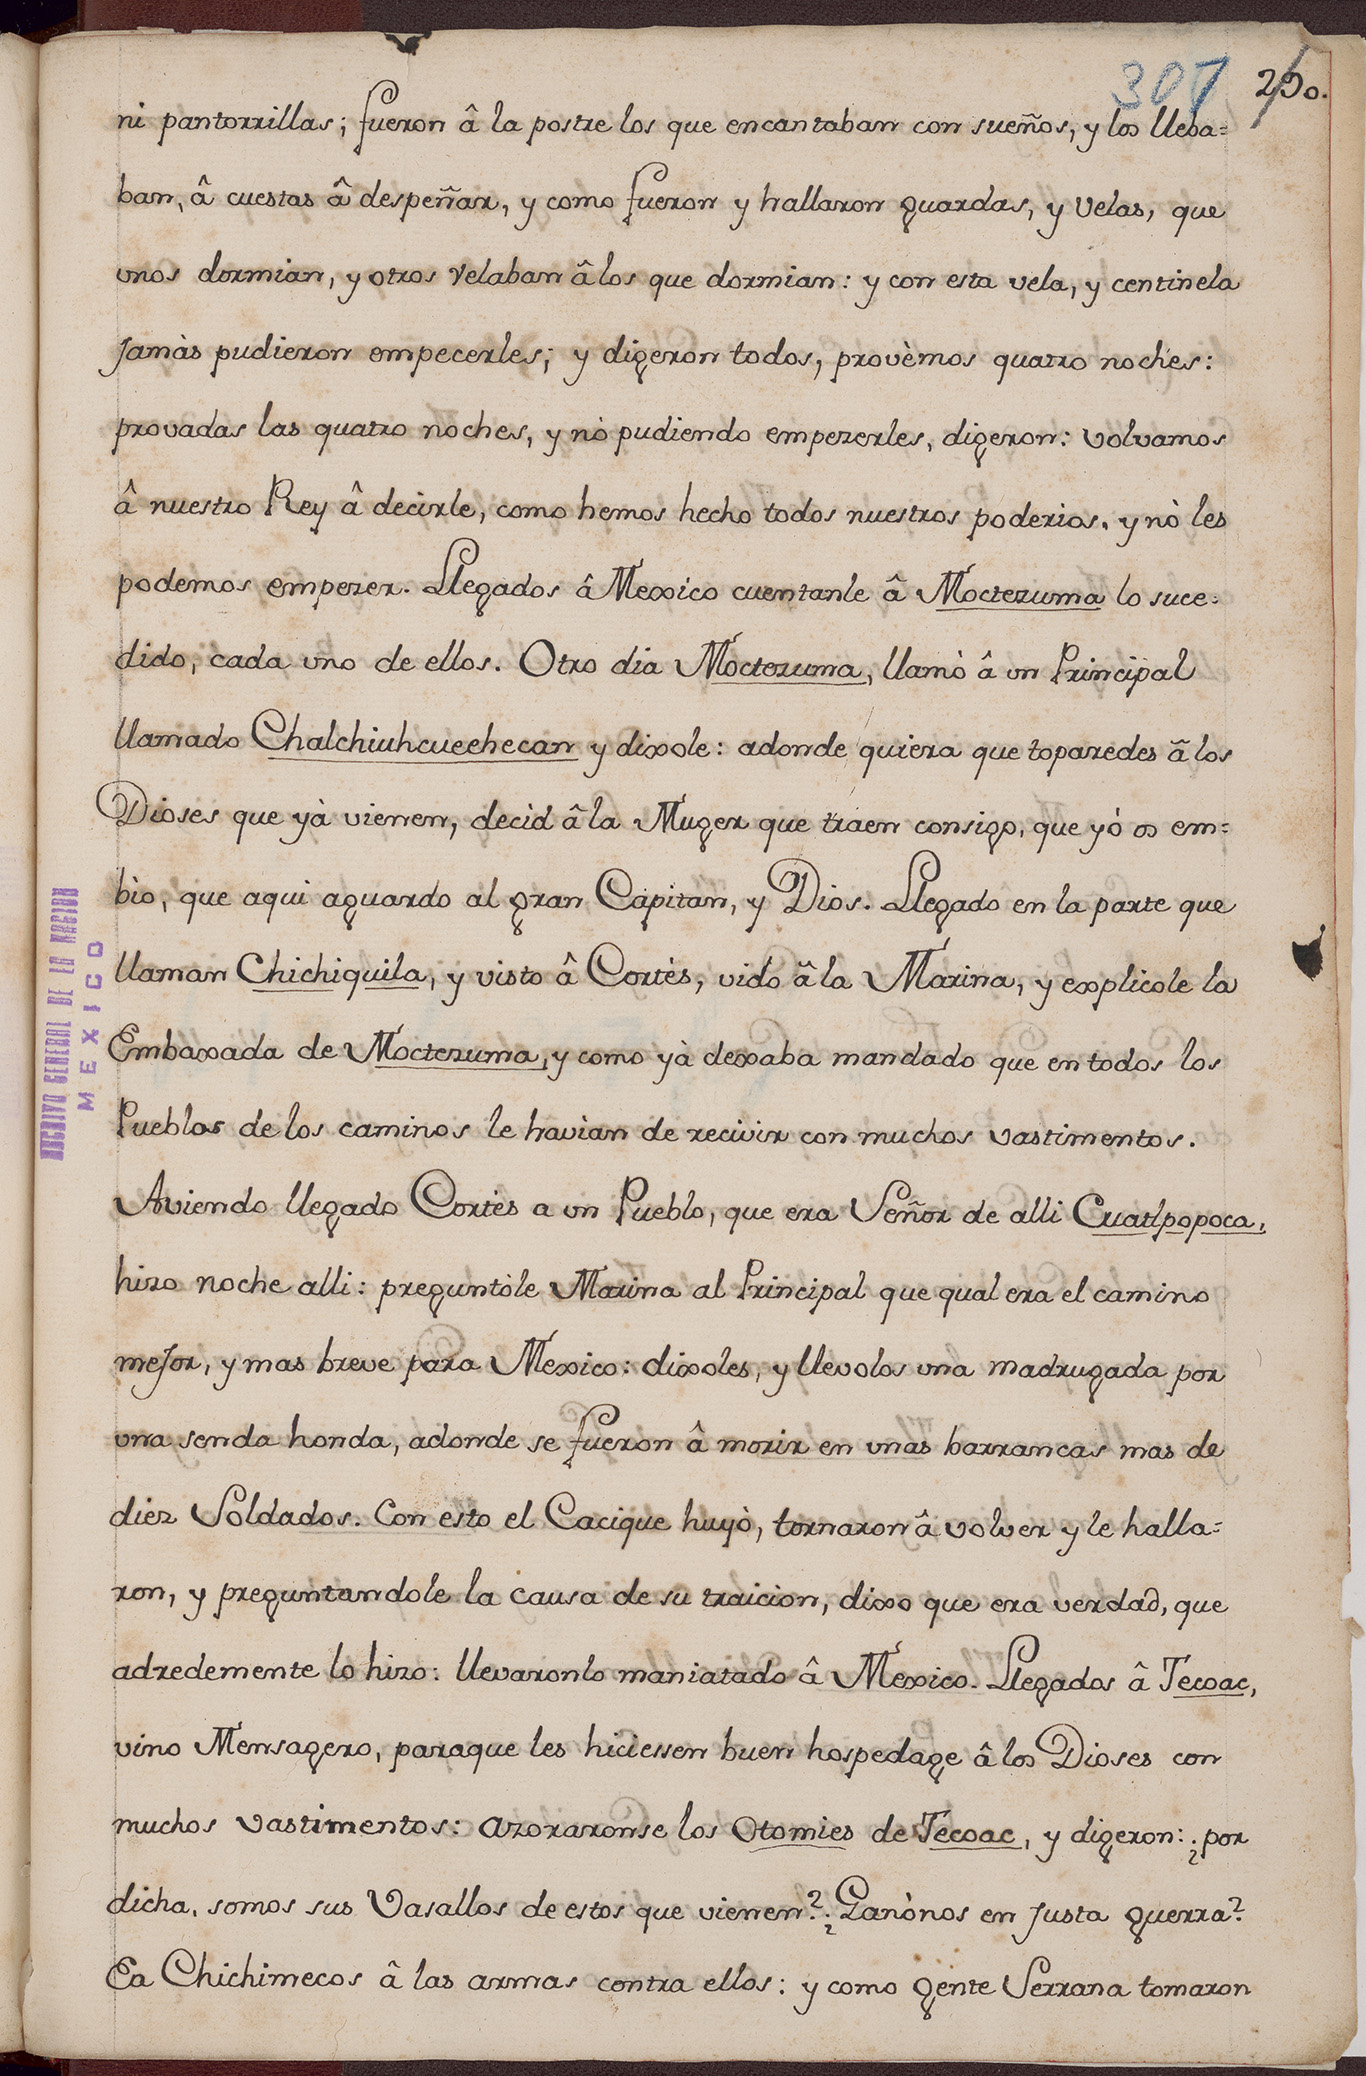 307 250.
ni pantorrillas; fueron â la postre los que encantaban con sueños, y los lleba=
ban, â cuestas â despeñar, y como fueron y hallaron guardas, y Velas, que
vnos dormian, y otros velaban â los que dormian: y con esta vela, y centinela
Jamàs pudieron empecerles; y digeron todos, provèmos quatro noches:
provadas las quatro noches, y nò pudiendo empezerles, digeron: volvamos
â nuestro Rey â decirle, como hemos hecho todos nuestros poderios, y nò les
podemos empezer. Llegados â Mexico cuentanle â Moctezuma lo suce=
dido, cada vno de ellos. Otro dia Moctezuma, llamò â vn Principal
llamado Chalchiuhcueehecan y dixole: adonde quiera que toparedes â los
Dioses que yà vienen, decid â la Muger que traen consigo, que yò os em=
bio, que aqui aguardo al gran Capitan, y Dios. Llegado en la parte que
llaman Chichiquila, y visto â Cortès, vido â la Marina, y explicole la
Embaxada de Moctezuma, y como yà dexaba mandado que en todos los
Pueblos de los caminos le havian de recivir con muchos vastimentos.
Aviendo llegado Cortès a vn Pueblo, que era Señor de alli Cuatlpopoca,
hizo noche alli: preguntòle Marina al Principal que qual era el camino
meJor, y mas breve para Mexico: dixoles, y llevolos vna madrugada por
vna senda honda, adonde se fueron â morir en vnas barrancas mas de
diez Soldados. Con esto el Cacique huyò, tornaron â volver y le halla=
ron, y preguntandole la causa de su traicion, dixo que era verdad, que
adredemente lo hizo: llevaronlo maniatado â Mexico. Llegados â Tecoac,
vino Mensagero, paraque les hiciessen buen hospedage â los Dioses con
muchos vastimentos: azoraronse los Otomies de Tecoac, y digeron: ¿por
dicha, somos sus Vasallos de estos que vienen? ¿Ganònos en Justa guerra?
Ea Chichimecos â las armas contra ellos: y como gente Serrana tomaron
ARCHIVO GENERAL DE LA NACION
MEXICO